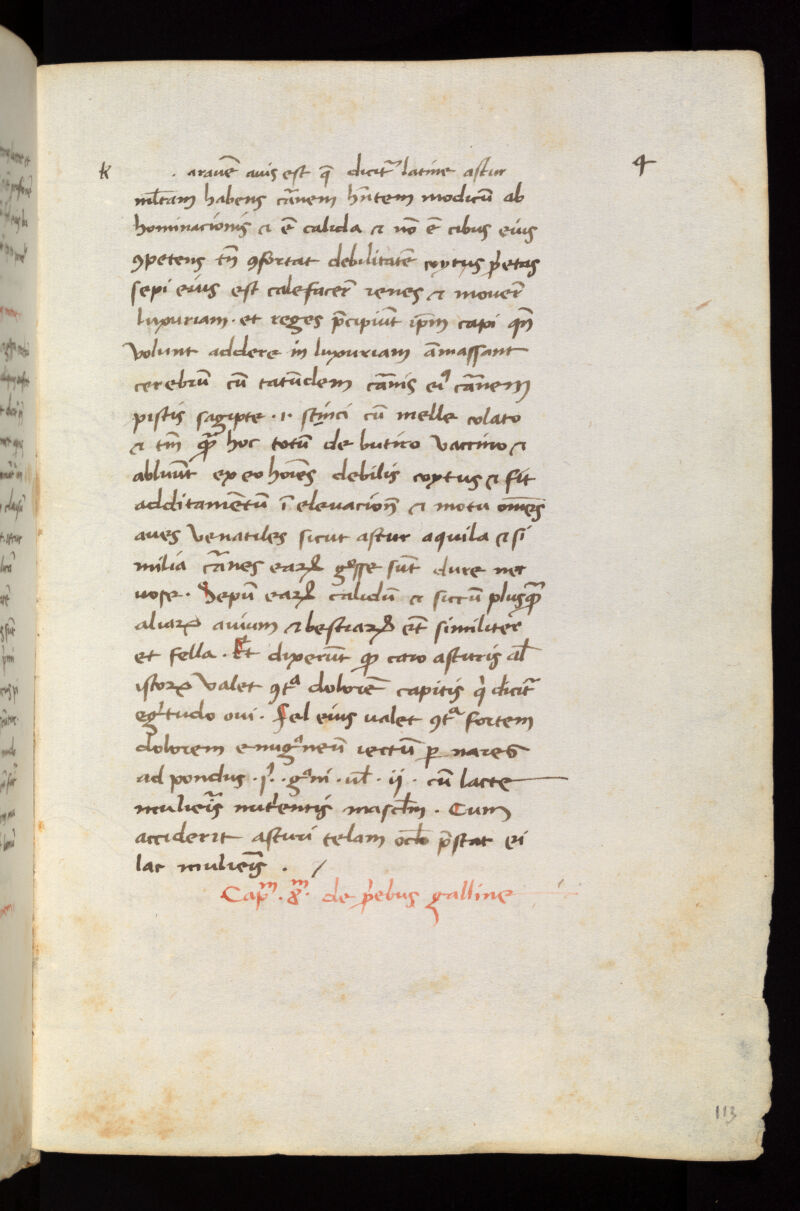 k . arauē auis est q̄ dicit᷑ latine astur 4
ml̄tam habens carnem hn̄tem modicū ab
hominacionis ⁊ ē calida ⁊ nō ē cibus eius
ꝯpetens tn̄ ꝯfortat debilitatē coytus p̄etas
sepi eius est calefacer̄ renes ⁊ mouer̄
luxuriam · et reges p̄cipiūt ip̄m capi qn̄
volunt addere in luxuriam āmassant
cerebrū cū tatūdem carnis ei᷒ carnem
pistis sagipte · i · stinci cū melle colato
⁊ tm̄ hoc totū de butiro vaccino ⁊
abluūt ex eo hoīes debilis coytus ⁊ fit
additamentū ī eleuacion̄ ⁊ motu om̄s
aues venatiles sicut astur aquila ⁊ si
milia carnes earꝝ gosse sūt dure ner
uose · Sepum earꝝ calidū ⁊ siccū plusquam
aliarꝝ auium ⁊ bestiarꝝ er̄t similiter
et fella · Et dixerūt caro asturis al̄
istorꝝ valet ꝯtᵃ dolorē capitis qͥ dicit᷑
egͥtudo oui · Fel eius valet ꝯtᵃ fortem
dolorem emigᵃneū iectū ꝑ nares
ad pondus · gᵃni · ul̄ · ii · cū lacte
mulieris nutrientis mascl̄m · Cum
acciderit asturi telam ocl̄o p̄stat ei
lac mulieris · /
Capᵐ · 8ᵐ · de p̄tebus galline
113